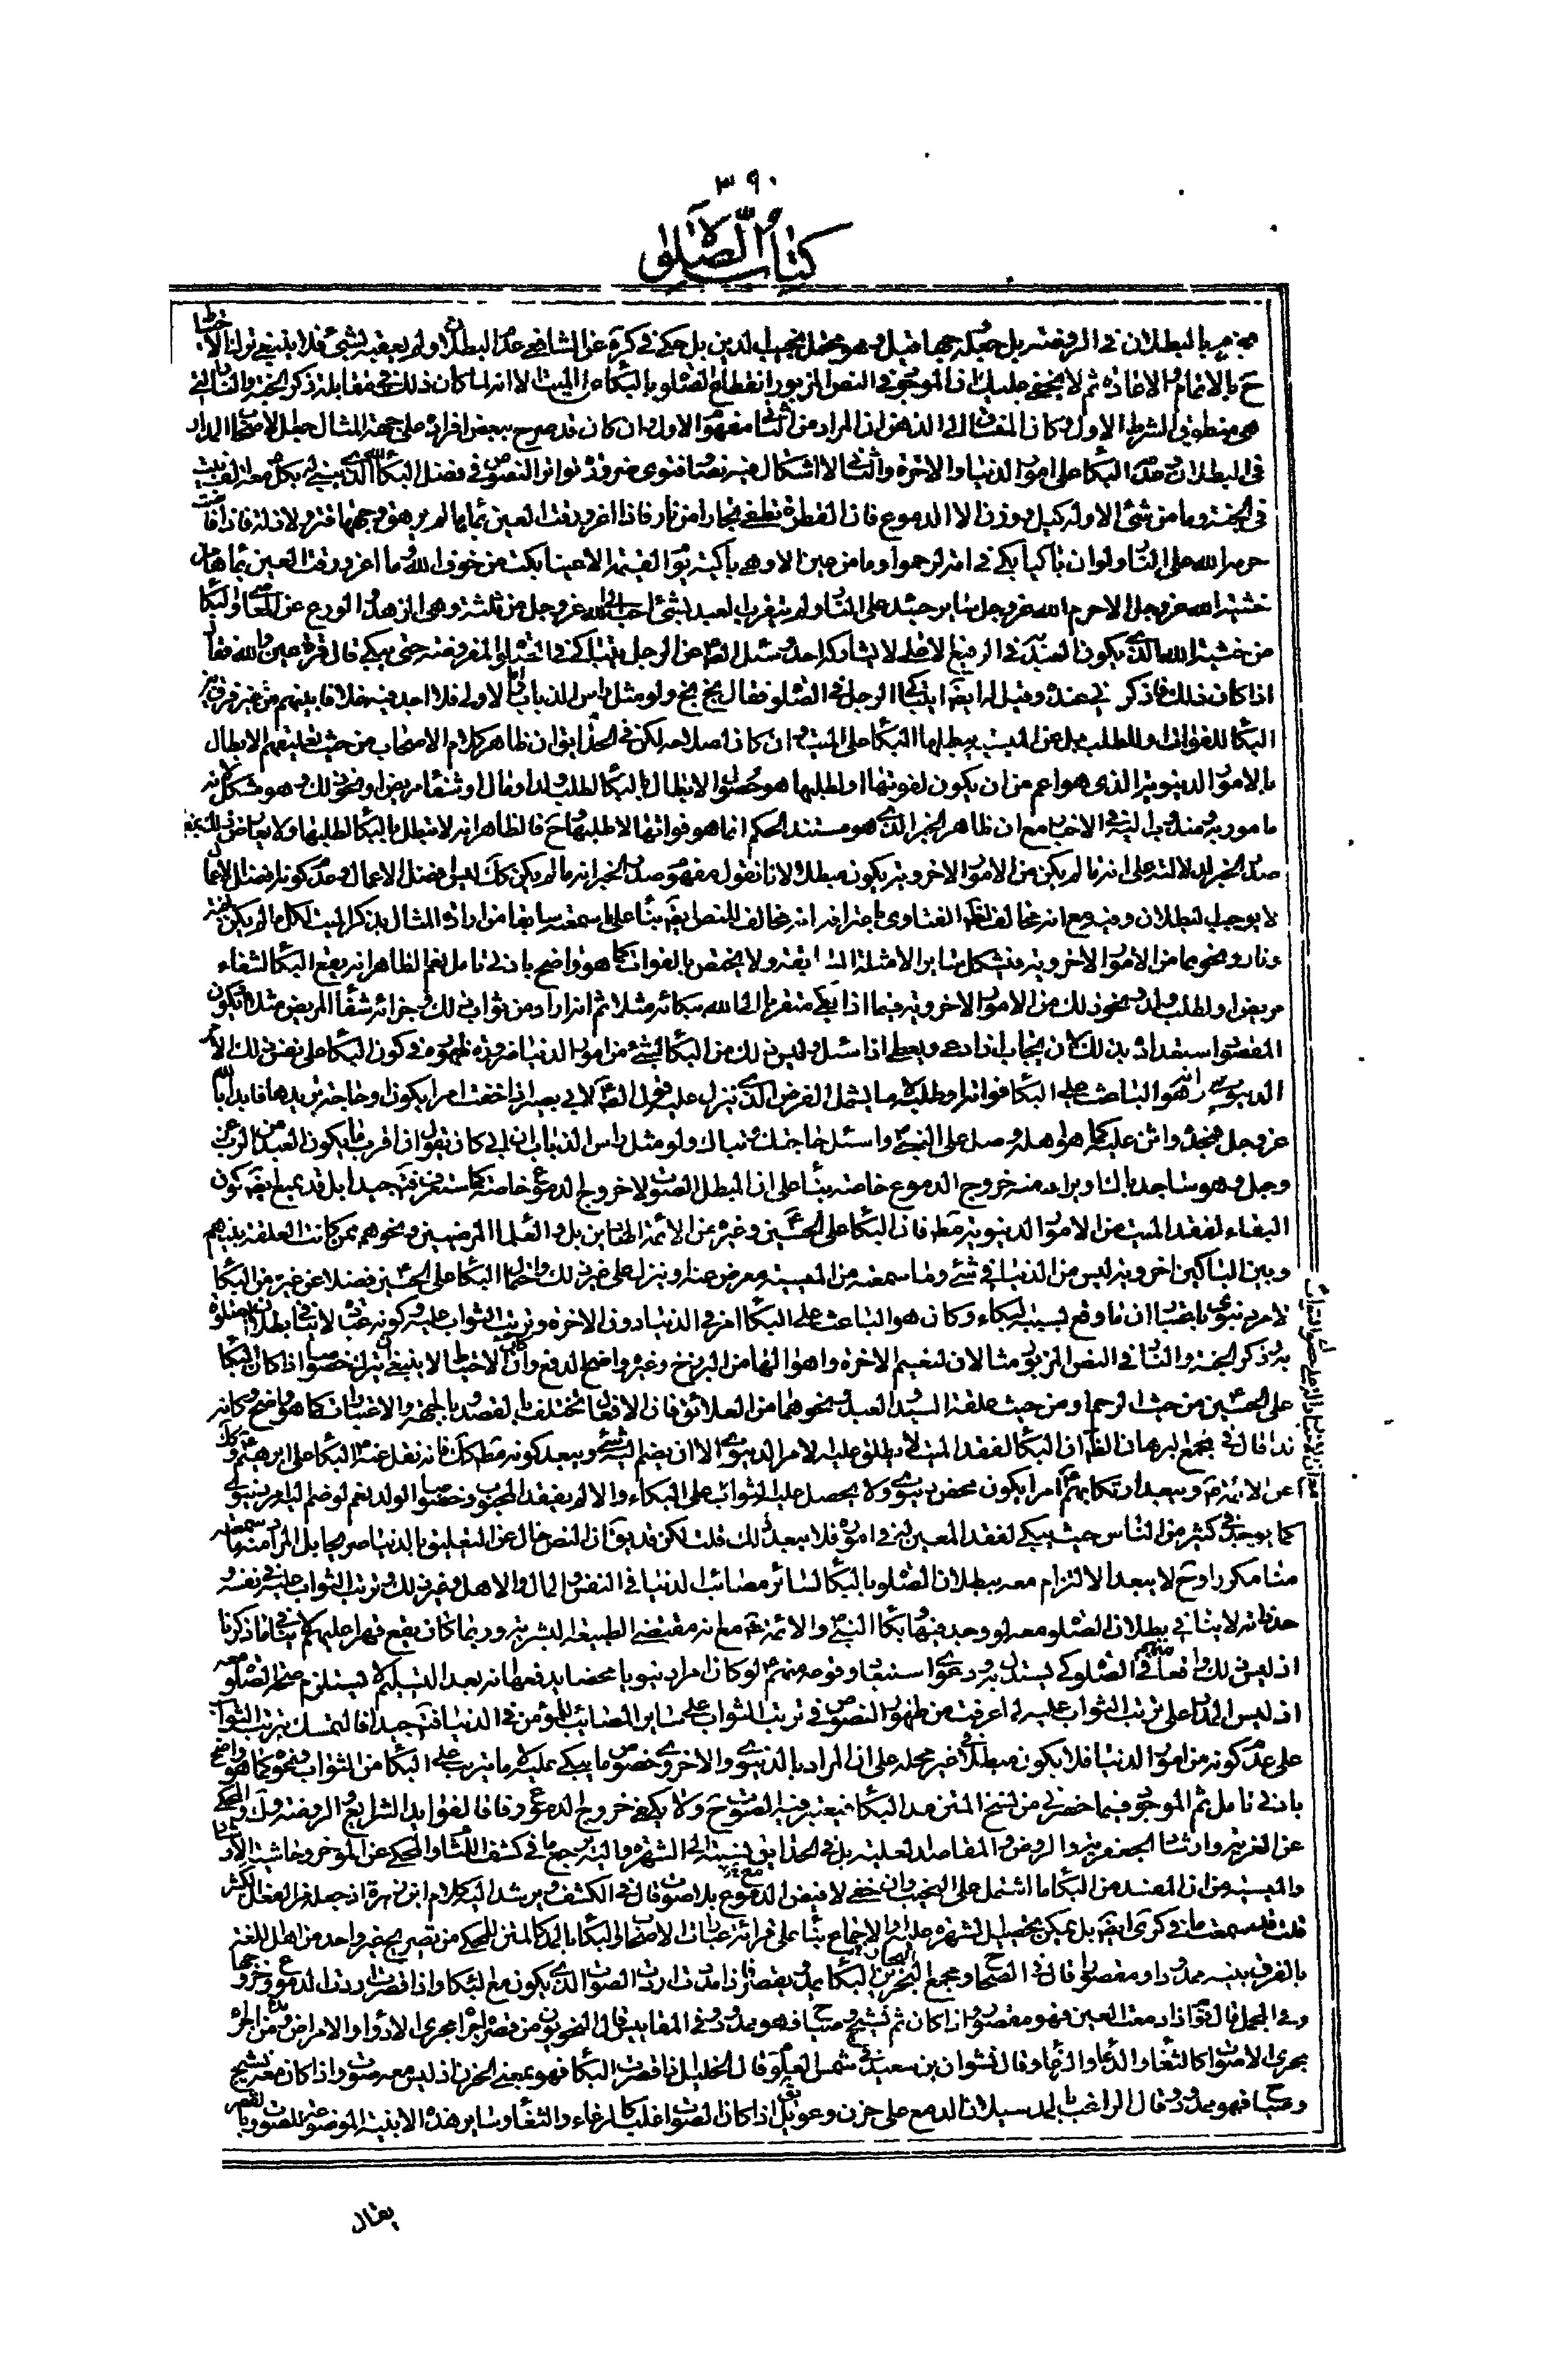 ٣٩٠
كتاب الصلاة
بالبطلان في الروضة بل عن الشافعي عدم البطلان ولم يعقبه بشئ فلا ينبغي ترك الاحتياط
ح بالاتمام والاعادة ثم لا يخفى عليك ان الموجود في النص المزبور انقطاع الصلوة بالبكاء على الميت الا انه لما كان ذلك في مقابلة ذكر الجنة والنار التي
هي منطوق الشرط الاول كان المنساق الى الذهن ان المراد من الثاني مفهوم الاول وان كان قد صرح ببعض افراده على جهة المثال جعل الاصحاب المدار
في البطلان وعدمه البكاء على امور الدنيا والاخرة والثاني لا اشكال فيه نصا وفتوى ضرورة تواتر النصوص في فضل البكاء الذي يبنى له بكل دمعة الف بيت
في الجنة وما من شئ الا وله كيل ووزن الا الدموع فان القطرة تطفئ بحارا من نار فاذا اغرورقت العين بمائها لم يرهق وجهها قتر ولا ذلة فاذا فاضت
حرمه الله على النار ولو ان باكيا بكى في امة لرحموا وما من عين الا وهي باكية يوم القيمة الا عينا بكت من خوف الله وما اغرورقت العين بمائها من
خشية الله عز وجل الا حرم الله عز وجل سائر جسده على النار ولم يتقرب العبد بشئ احب الى الله عز وجل من ثلثة وهي الزهد والورع عن المعاصي والبكاء
من خشية الله الذي يكون العبد به في الرفيع الاعلى لا يشاركه احد وسئل الصادق عن الرجل يتباكى في الصلوة المفروضة حتى يبكي قال قرة عين والله فقال
اذا كان ذلك فاذكرني عنده وقيل له ايضا ايتباكى الرجل في الصلوة فقال بخ بخ ولو مثل رأس الذباب
البكاء للفوات وللطلب بل عن الميسية يبطلها البكاء على الميت وان كان لصلاحه لكن في الحدائق ان ظاهر كلام الاصحاب من حيث تعليقهم الابطال
بالامور الدنيوية الذي هو اعم من ان يكون لفوتها او لطلبها هو حصول الابطال بالبكاء لطلب ولد او مال او شفاء مريض او نحو ذلك وهو مشكل لانه
مأمور به مندوب اليه في الاخبار مع ان ظاهر الخبر الذي هو مستند الحكم انما هو فواتها لا طلبها وح فالظاهر انه لا تبطل بالبكاء لطلبها ولا يعارض ذلك
صدر الخبر الدلالته على انه ما لم يكن من الامور الاخروية يكون مبطلا لانا نقول مفهوم صدر الخبر انه ما لم يكن كذلك ليس افضل الاعمال وعدم كونه افضل الاعمال
لا يوجب البطلان وفيه مع انه مخالف لظاهر الفتاوى باعترافه انه مخالف للنص ايضا بناء على ما سمعته سابقا من ارادة المثال بذكر الميت لكل ما لم يكن جنة
ونار ونحوهما من الامور الاخروية فتشكل سائر الامثلة السابقة ولا يختص بالفوات كما هو واضح بادنى تأمل نعم الظاهر انه يقع البكاء لشفاء
مريض او لطلب ولد ونحو ذلك من الامور الاخروية فيما اذا بكى متقربا الى الله ببكائه مثلا ثم انه اراد من ثواب ذلك وجزائه شفاء المريض مثلا او يكون
المقصود استعداده بذلك لان يجاب اذا دعى ويعطى اذا سئل وليس ذلك من البكاء لشئ من امور الدنيا ضرورة ظهوره في كون البكاء على نفس ذلك الامر
الدنيوي وانه هو الباعث على البكاء فواتا وطلبا
عز وجل فمجده واثن عليه كما هو اهله وصل على النبي واسئل حاجتك وتباك ولو مثل رأس الذباب ان ابي كان يقول ان اقرب ما يكون العبد من الرب عز
وجل وهو ساجد باك او يراد منه خروج الدموع خاصة بناء على ان المبطل الصوت لا خروج الدموع خاصة كما ستعرف فتأمل جيدا بل قد يمنع ايضا كون
البكاء لفقد الميت من الامور الدنيوية مطلقا فان البكاء على الحسين وغيره من الائمة الطاهرين بل والعلماء المرضيين ونحوهم ممن كانت العلقة بينهم
وبين الباكين اخروية ليس من الدنيا في شئ وما سمعته من الميسية معرض عنه او ينزل على غير ذلك واحتمال البكاء على الحسين فضلا عن غيره من البكاء
لامر دنيوي باعتبار ان ما وقع بسببه البكاء وكان هو الباعث على البكاء امر في الدنيا دون الاخرة وترتب الثواب عليه وكونه عبادة لا ينافي بطلان الصلوة
به وذكر الجنة والنار في النص المزبور مثالا لان لنعيم الاخرة واهوالها من البرزخ وغيره واضح الدفع وان كان الاحتياط لا ينبغي تركه خصوصا اذا كان البكاء
على الحسين من حيث الرحم او من حيث علقة السيد والعبد ونحوهما من العلائق فان الافعال تختلف بالقصد وبالجهة والاعتبارات كما هو واضح وكانه
لذا قال في مجمع البرهان الظاهر ان البكاء لفقد الميت لا يطلق عليه الامر الدنيوي الا ان يضم اليه شئ ويبعد كونه مطلقا كذلك فانه نقل عنه البكاء على ابراهيم وكذا
عن الائمة ويبعد ارتكابهم امرا يكون محض دنيوي ولا يحصل عليه الثواب على البكاء والالم بفقد المحبوب وخصوصا الولد نعم لو ضم اليه امر دنيوي
كما يوجد في كثير من الناس حيث يبكي لفقد المعين له في اموره فلا يبعد ذلك قلت لكن قد يق ان النص خال عن التعليق بالدنيا صريحا بل المراد منه ما سمعته
منا مكررا وح لا يبعد الالتزام معه ببطلان الصلوة بالبكاء لسائر مصائب الدنيا في النفس والمال والاهل وغير ذلك وترتب الثواب عليه في نفسه
حد ذاته لا ينافي بطلان الصلوة معه لو وجد فيها وبكاء النبي والائمة مع انه مقتضى الطبيعة البشرية وربما كان يقع قهرا عليهم لا ينافي ما ذكرنا
اذ ليس ذلك واقعا منهم في الصلوة كي يستدل به ودعوى استبعاد وقوعه منهم لو كان امرا دنيويا محضا يدفعها انه بعد التسليم لا يستلزم صحة الصلوة معه
اذ ليس المدار على ترتب الثواب عليه لما عرفت من ظهور النصوص في ترتب الثواب على سائر المصائب للمؤمن في الدنيا فتأمل جيدا فالتمسك بترتب الثواب
على عدم كونه من امور الدنيا فلا يكون مبطلا في غير محله على ان المراد بالدنيوي والاخروي خصوص ما يبكى عليه لا ما يترتب على البكاء من الثواب ونحوه كما هو واضح
بادنى تأمل ثم الموجود فيما حضرني من نسخ المتن مد البكاء فيعتبر فيه الصوت ح ولا يكفي خروج الدموع وفاقا لفوائد الشرايع والروضة والمحكي
عن الغرية وارشاد الجعفرية والروض والمقاصد العلية بل في الحدائق نسبته الى الشهرة واليه يرجع ما في كشف اللثام والمحكي عن الموجز وحاشية الارشاد
والميسية من ان المفسد من البكاء ما اشتمل على النحيب وان خفي لا فيض الدموع بلا صوت قال في الكشف ويرشد اليه كلام ابن زهرة اذ جعله من الفعل الكثير
قلت قد سمعت ما في كرى ايضا بل يمكن تحصيل الشهرة عليه او الاجماع بناء على قراءة عبارات الاصحاب البكاء بالمد كالمتن للمحكي من تصريح غير واحد من اهل اللغة
بالفرق بينه ممدودا ومقصورا قال في الصحاح ومجمع البحرين البكاء يمد ويقصر فاذا مددت اردت الصوت الذي يكون مع البكاء واذا قصرت اردت الدموع وخروجها
وفي المجمل قال قوم اذا دمعت العين فهو مقصور واذا كان ثم نشيج وصياح فهو ممدود وفي المقاييس قال النحويون من قصره اجراه مجرى الادواء والامراض ومن مده اجراه
مجرى الاصوات كالثغاء والدعاء والرغاء وقال نشوان بن سعيد في شمس العلوم قال الخليل اذا قصرت البكاء فهو بمعنى الحزن اذ ليس معه صوت واذا كان معه نشيج
وصياح فهو ممدود وقال الراغب بالمد سيلان الدمع على حزن وعويل يق اذا كان الصوت اغلب كالرغاء والثغاء وسائر هذه الابنية الموضوعة للصوت وبالقصر
يقال